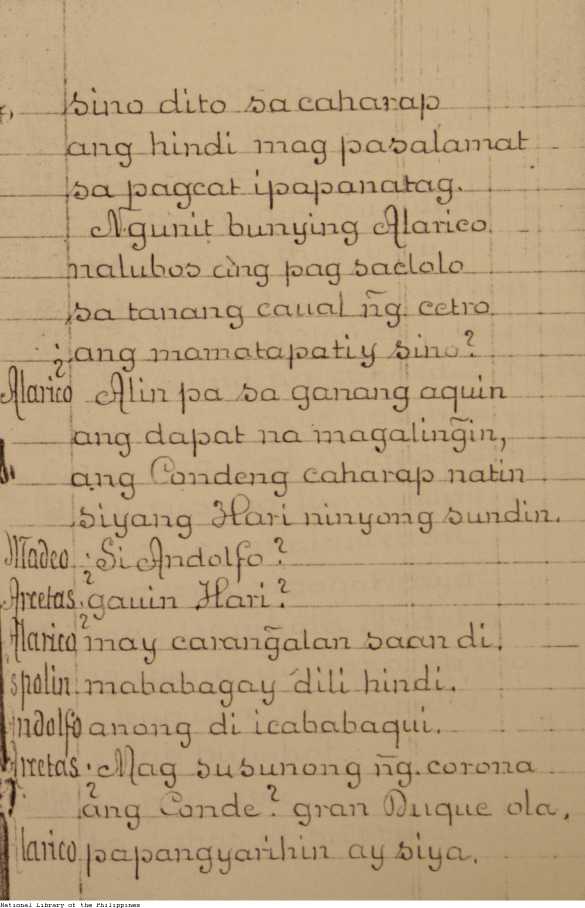 sino dito sa caharap
ang hindi mag pasalamat
sa pagcat ipapanatag.
Ñgunit bunying Alarico
nalubos áng pag saclolo
sa tanang caual ñg. cetro
¿ang mamatapatiy sino?
Alarico Alin pa sa ganang aquin
ang dapat na magaling̃in,
ang Condeng caharap natin
siyang Hari ninyong sundin.
Madeo. ¿Si Andolfo?
Arcetas. ¿gauin Hari?
Alarico may carang̃alan saan di.
spolin. mababagay dili hindi.
ndolfo anong di icababaqui.
Arcetas. ¿Mag susunong ñg. corona
ang Conde? gran Duque ola,
larico papangyarihin ay siya.
National Library of the Philippines